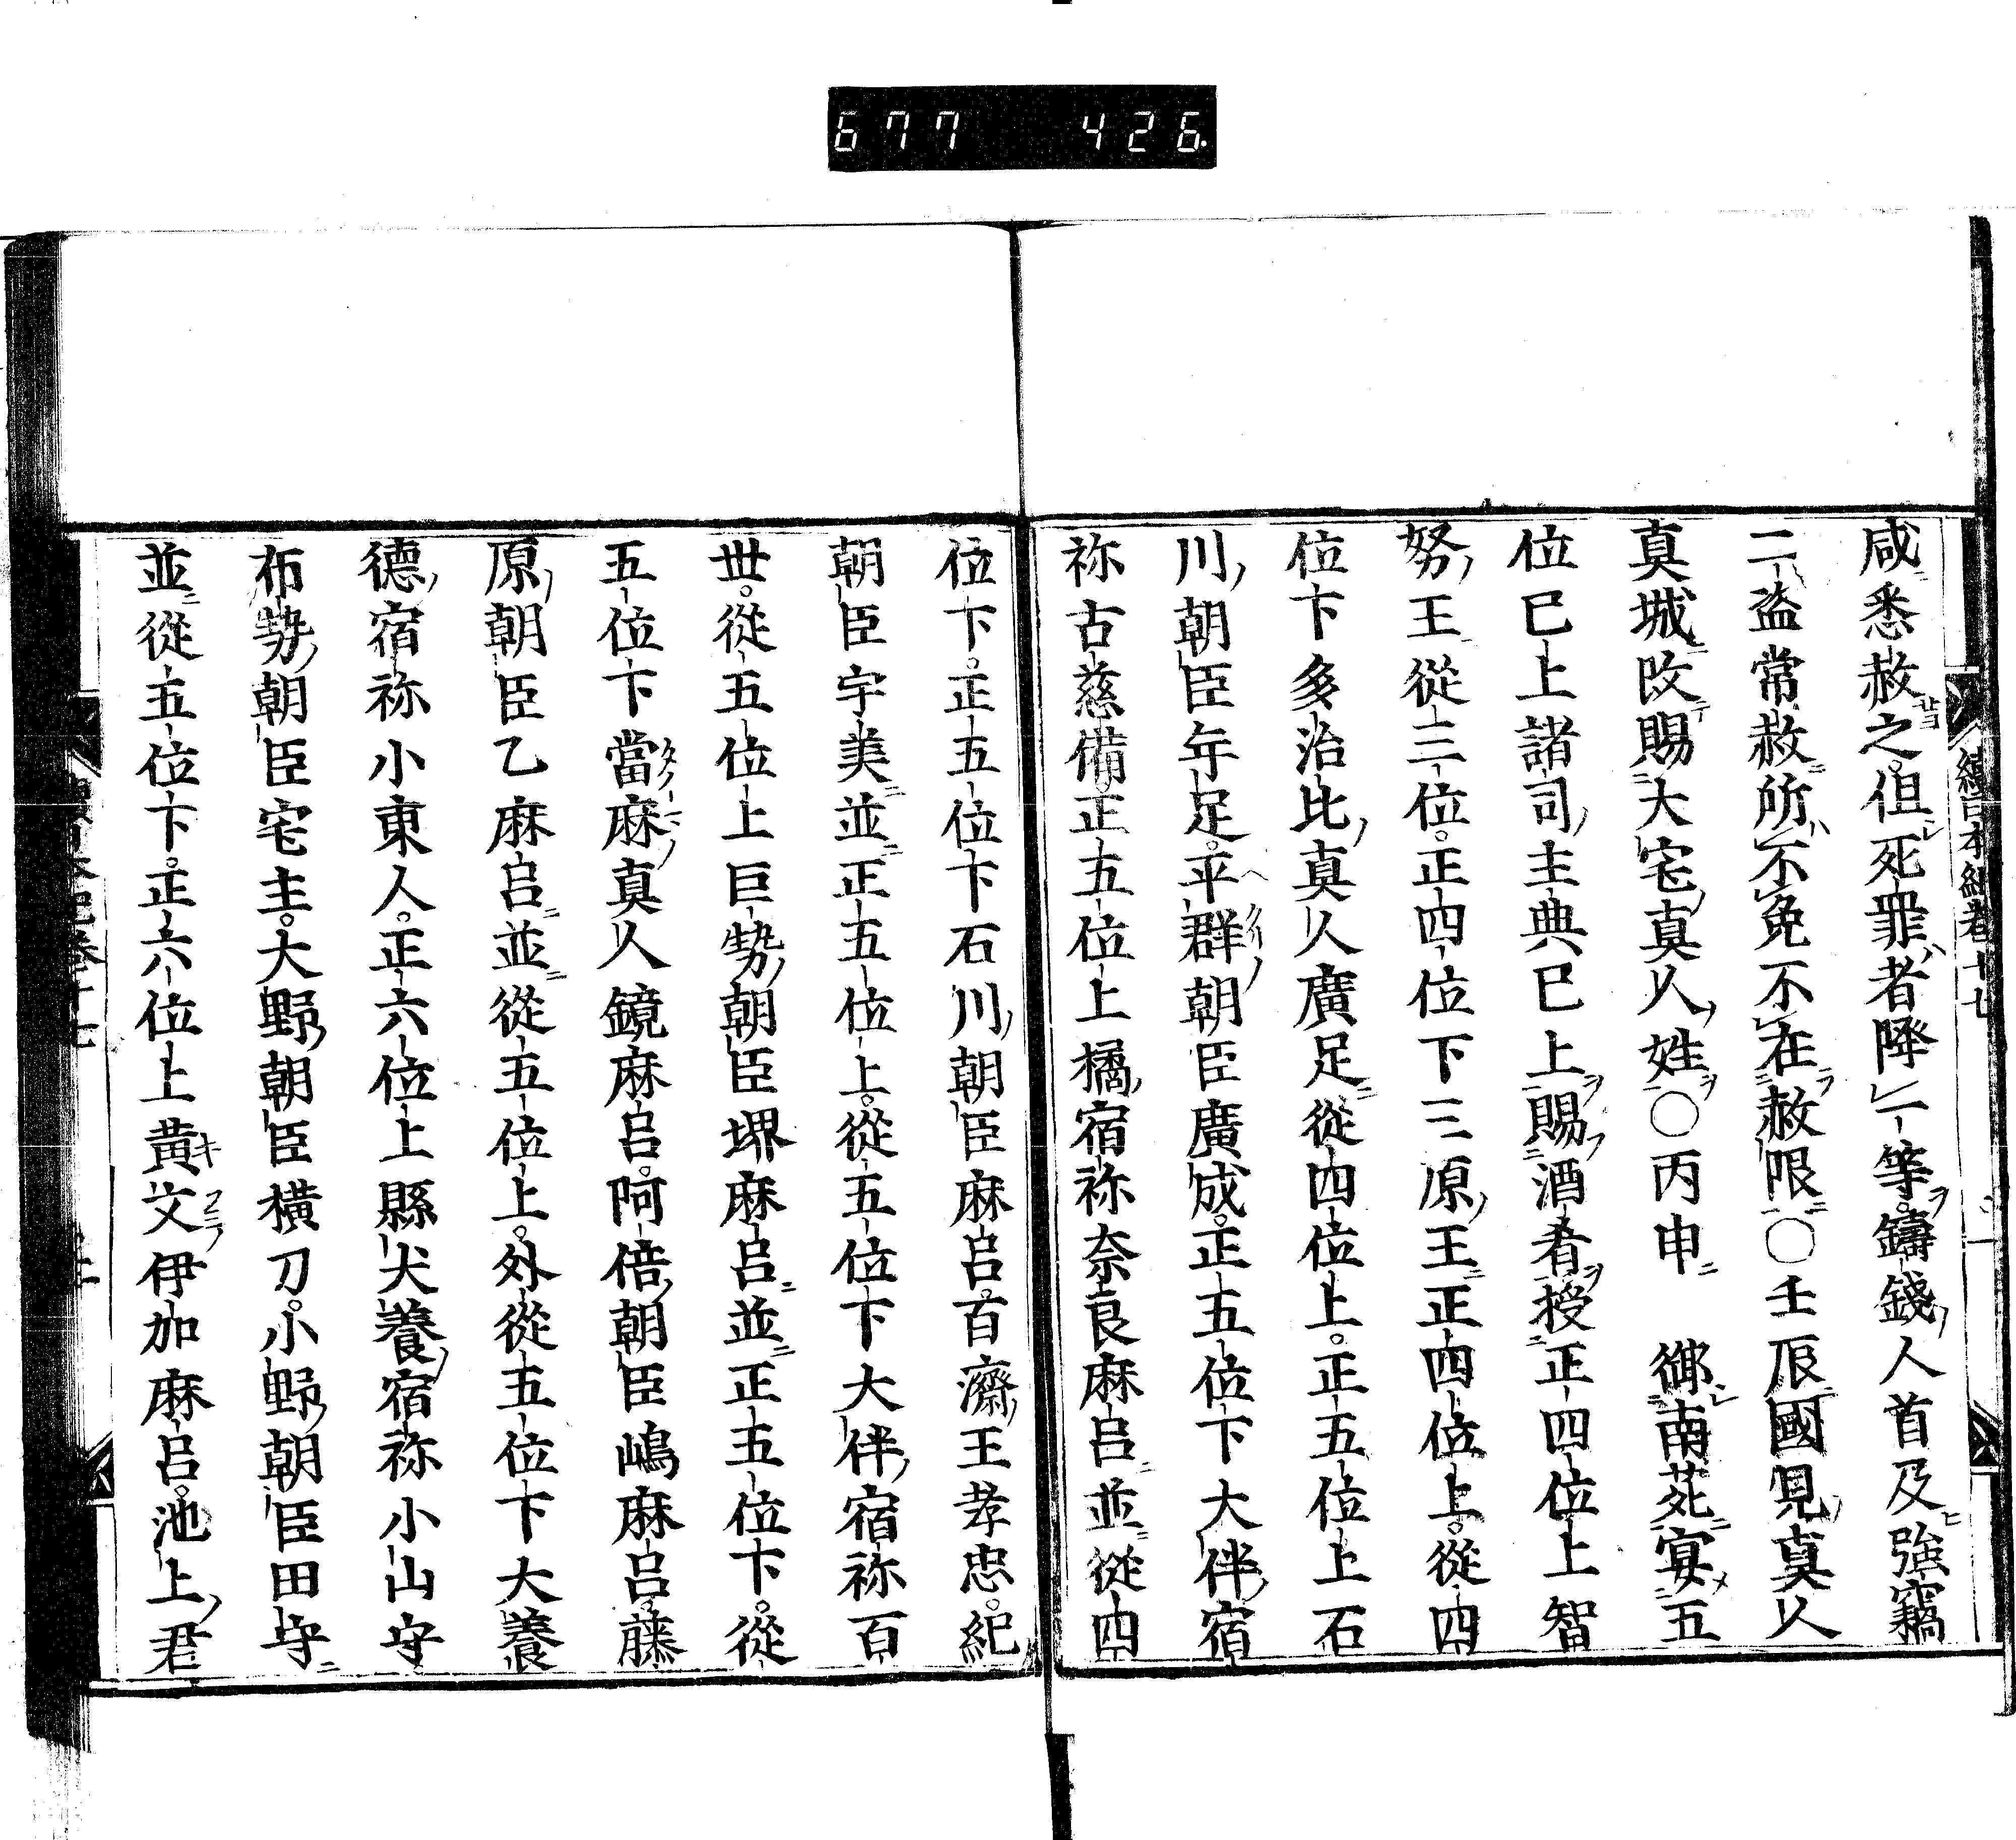 677 426.
續日本紀卷十七
咸悉赦之。但死罪者降一等。鑄錢人首及強竊
二盗常赦所不免不在赦限○壬辰國見真人
真城改賜大宅真人姓○丙申 御南苑宴五
位已上諸司主典已上賜酒肴授正四位上智
努王從三位。正四位下三原王正四位上。從四
位下多治比真人廣足從四位上。正五位上石
川朝臣年足。平群朝臣廣成。正五位下大伴宿
祢古慈備。正五位上橘宿祢奈良麻呂並從四
位下。正五位下石川朝臣麻呂。百濟王孝忠。紀
朝臣宇美並正五位上。從五位下大伴宿祢百
世。從五位上巨勢朝臣堺麻呂並正五位下。從
五位下當麻真人鏡麻呂。阿倍朝臣嶋麻呂。藤
原朝臣乙麻呂並從五位上。外從五位下大養
德宿祢小東人。正六位上縣犬養宿祢小山守
布勢朝臣宅主。大野朝臣横刀。小野朝臣田守
並從五位下。正六位上黄文伊加麻呂。池上君